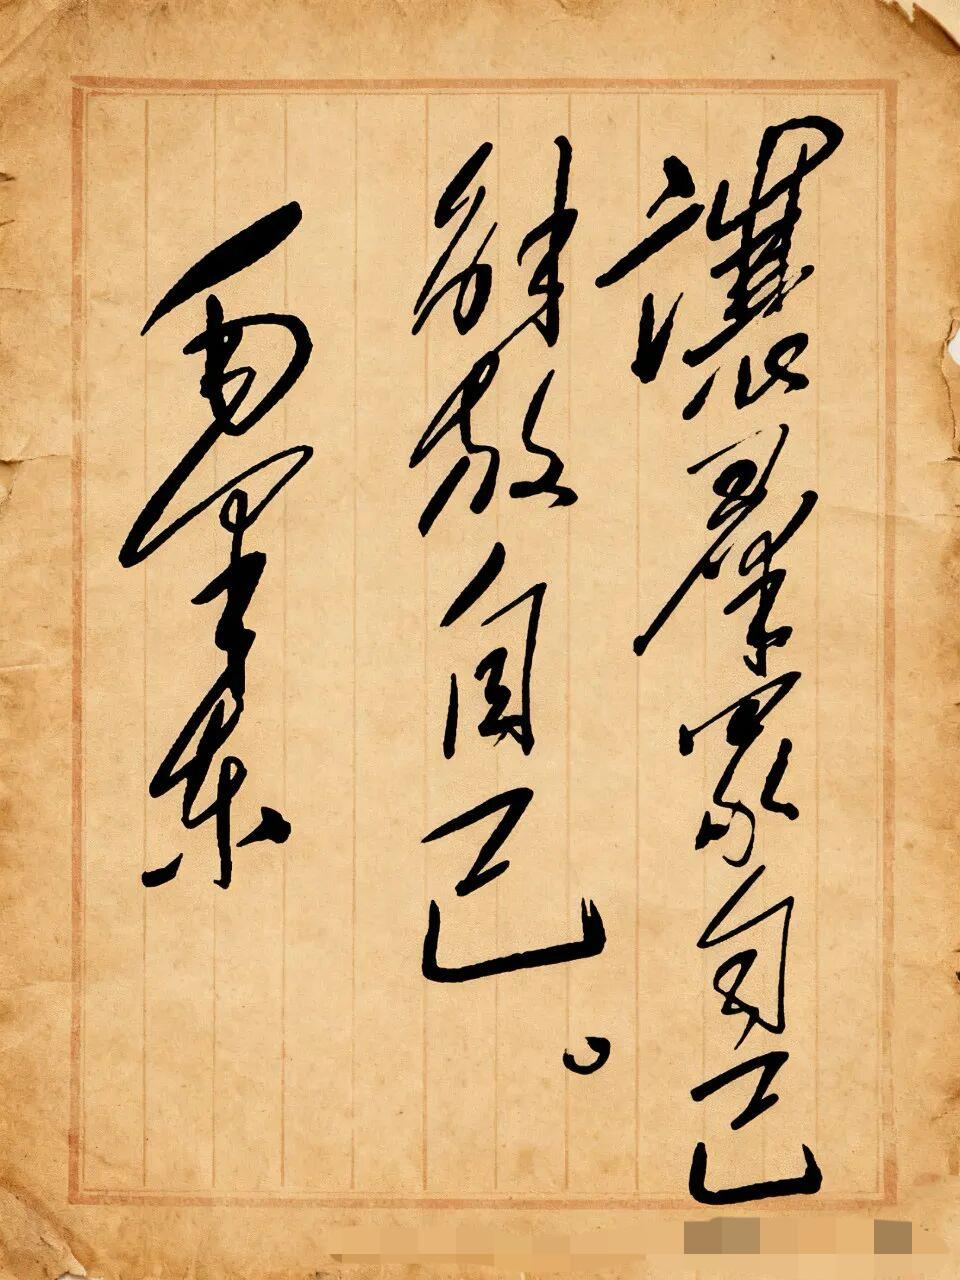 讓羣眾自己
解放自己。
毛澤东